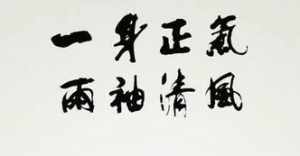 一身正氣
兩袖清風